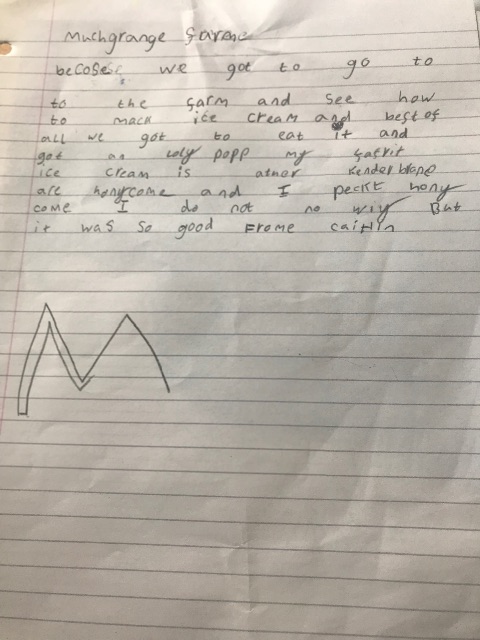 Muchgrange farme
becose we got to go to
to the farm and see how
to mack ice cream and best of
all we got to eat it and
got an loly popp my faevrit
ice cream is ather kender blone
are honycome and I peckt hony
come I do not no wiy But
it was so good Frome caitlin